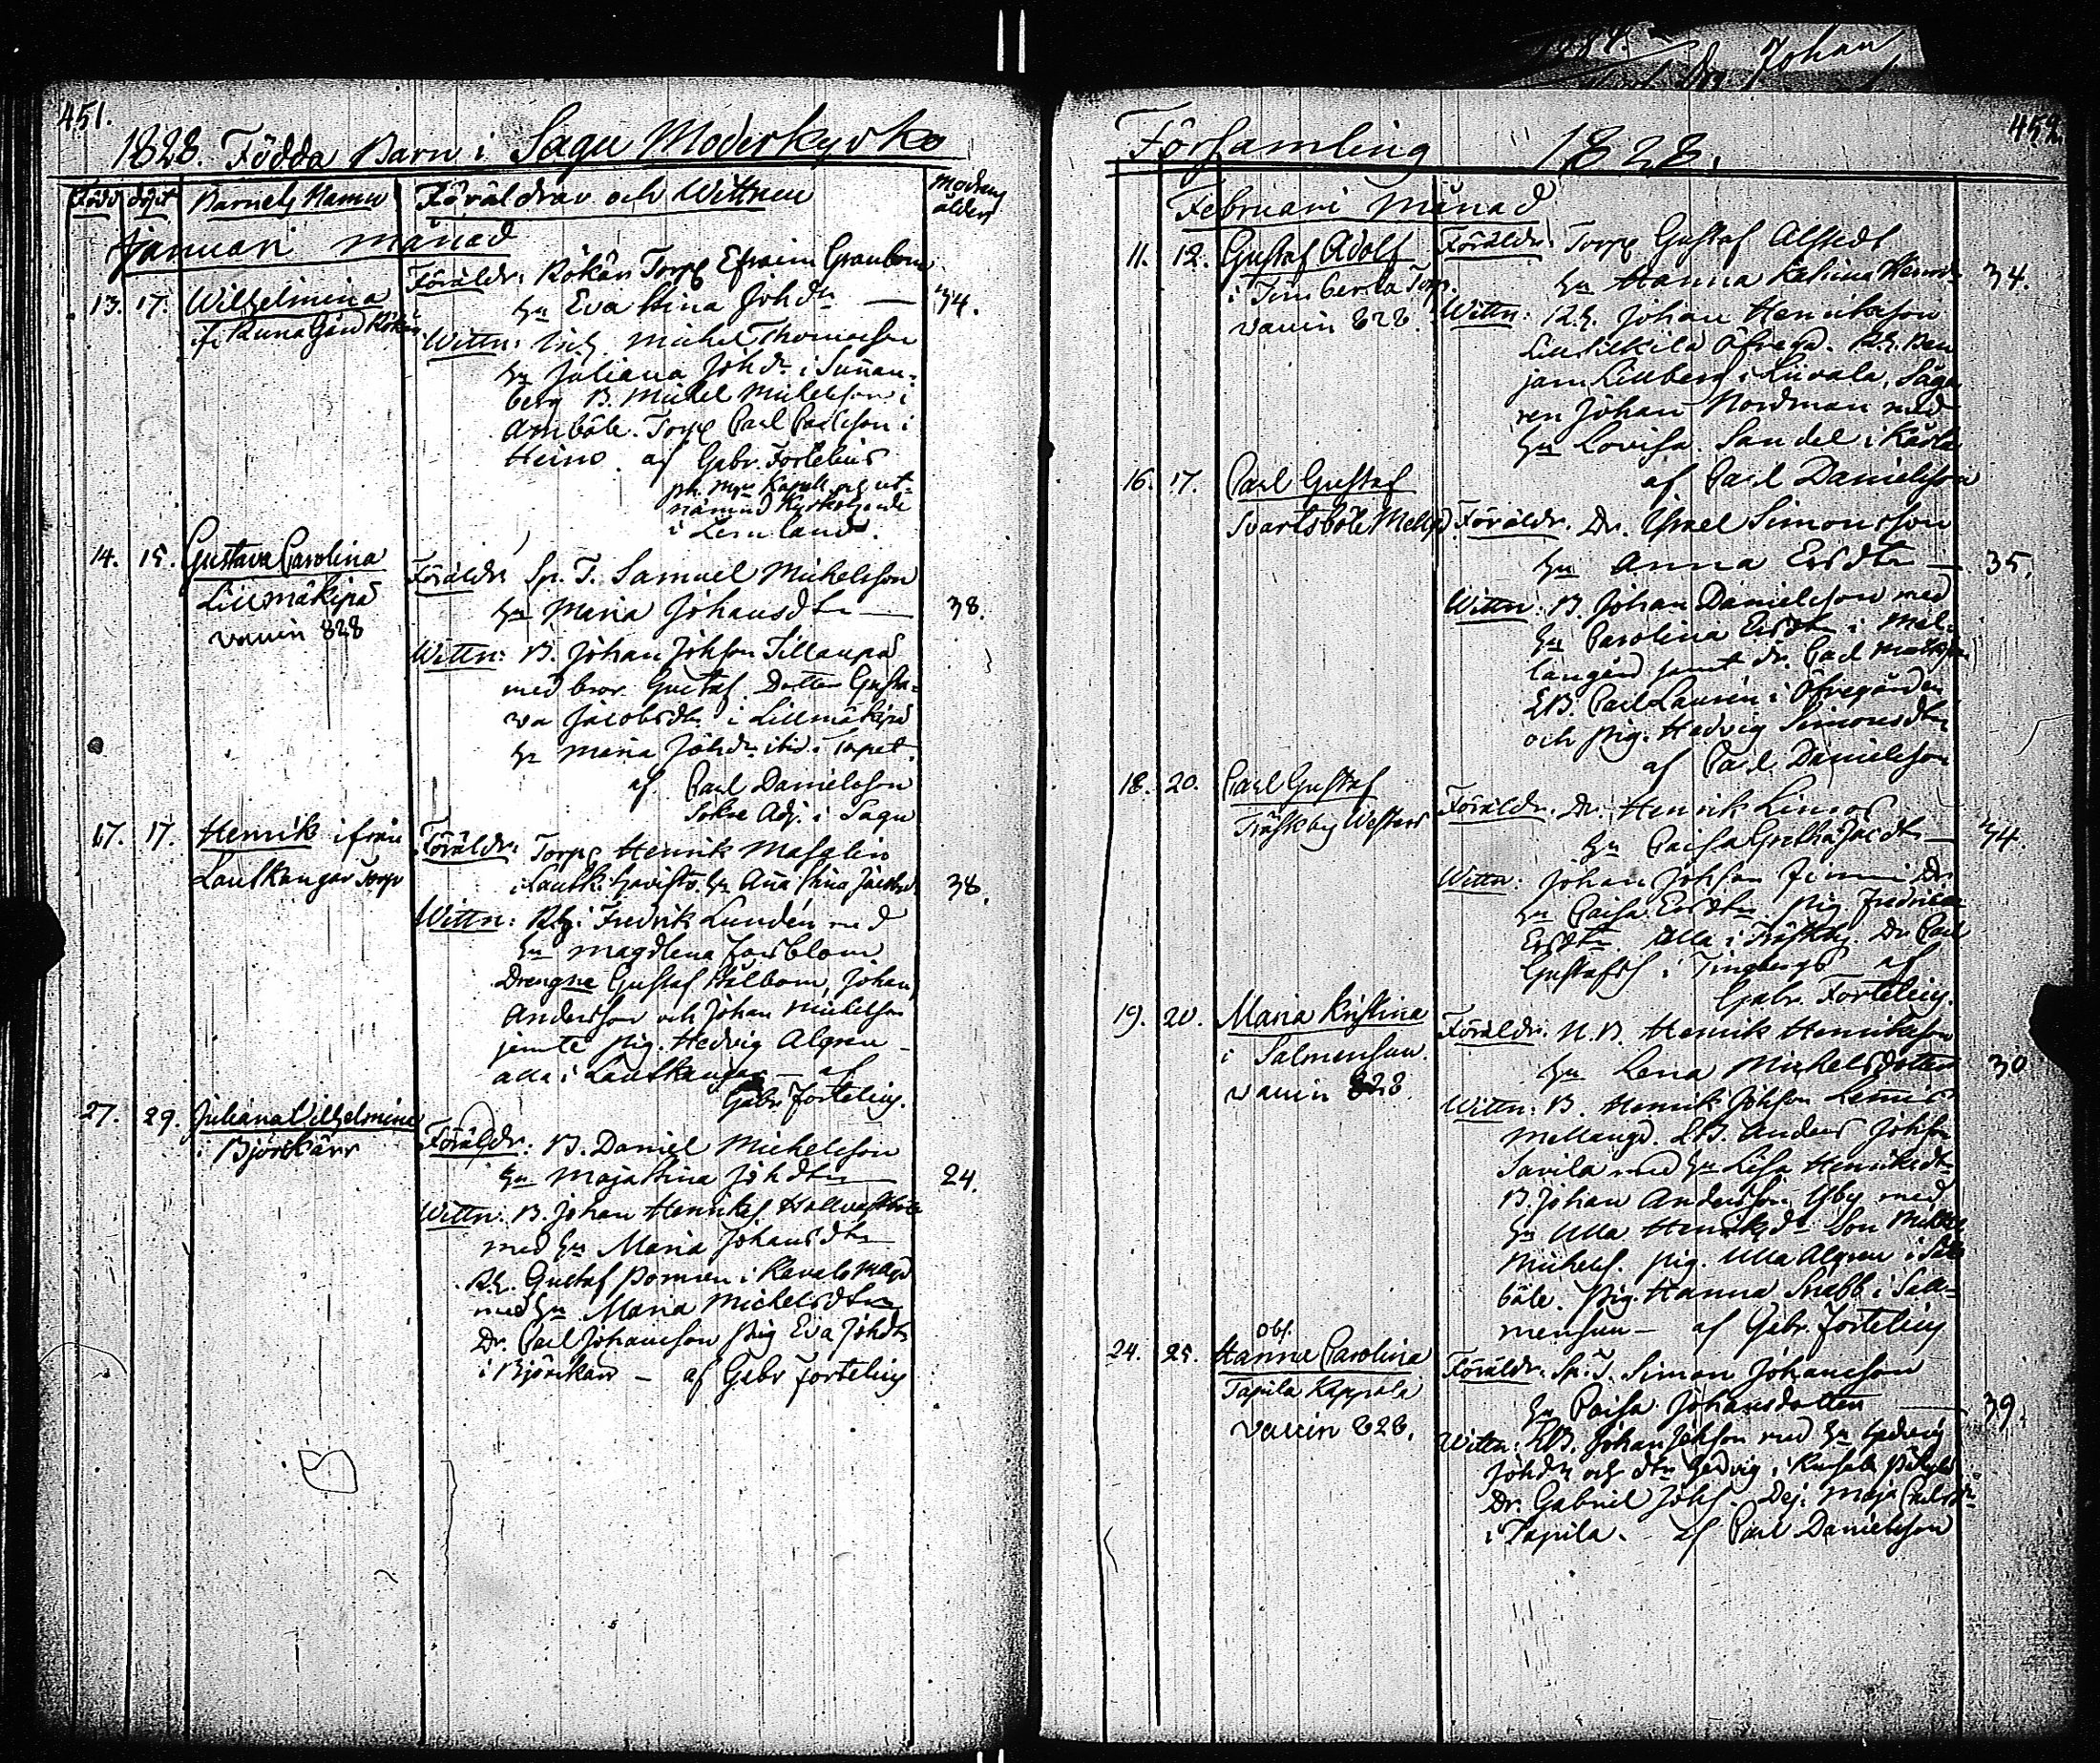 1884.
Johan
451.
1828. Födda Barn i Sagu Moderkyrko
Född döpt Barnets Namn Föräldrar och Wittnen Modrens ålder
Januari månad
13. 17. Wilhelmina
Föräldr: Rökär Torp Efraim Granbom
Hu Eva Stina Johdr — 34.
Wittn: Michel Thomasson
Hu Juliana Johdr i Sunnanberg
B. Michel Michelsson i
Amböle. Torp Carl Carlsson i
Heino. af Gabr. Fortelius
i Lemland.
14. 15. Gustava Carolina
Lillmäkipä
vaccin 828
Föräldr Sp. T. Samuel Michelsson
Hu Maria Johansdtr — 38.
Wittn: B. Johan Johsson Tillaupä
med bror Gustaf. Dotter Gusta-
va Jacobsdtr i Lillmäkipä
Hu Maria Johdr ibid. Torpet
af Carl Danielsson
Sokne Adj. i Sagu
17. 17. Henrik ifrån
Lautkangar Torp
Föräldr: Torp Henrik Masalin
Hu Anna Stina 38.
Wittn: Fredrik Lundén med
Hu Magdlena Forsblom
Drengne Gustaf Hålbom, Johan
Andersson och Johan Michelsson
jemte Pig. Hedvig Algren
alla i Lautkangar — af
Gabr. Fortelius.
27. 29. Juliana Vilhelmina
i Björkkärr
Föräldr: B. Daniel Michelsson
Hu Maja Stina Johdtr 24.
Wittn: B. Johan Henriks
med Hu Maria Johansdtr
Gustaf i
med Hu Maria Michelsdtr
Dr. Carl Johansson Pig Eva Johdtr
i Björkkärr — af Gabr Fortelius
Församling 1828.
452.
Februari månad
11. 12. Gustaf Adolf
i Timberla Torp.
vaccin 828.
Föräldr: Torp Gustaf Alstedt
Hu Hanna 34.
Wittn: Johan Henriksson
Lillsilkilä Öfregd. Ben
jam Lillberg i Liivala, Såga
ren Johan Nordman med
Hu Lovisa Sandel i Kärla
af Carl Danielsson
16. 17. Carl Gustaf
Svartsböle Mellgd.
Föräldr. Dr. Israel Simonsson
Hu Anna Ersdtr — 35.
Wittn: B. Johan Danielsson med
Hu Carolina Ersdtr i Mel-
langård samt dr. Carl
LB. Carl Laurén i Öfregården
och Pig. Hedvig Simonsdtr
af Carl Danielsson
18. 20. Carl Gustaf
Träskby Westers
Föräldr. Dr. Henrik
Hu Caisa Greta — 34.
Wittn: Johan Johsson
Hu Caisa Ersdtr Pig Fredrica
Ersdtr. Alla i Träskby. Dr Carl
Gustafss i Tingbergs af
Gabr. Fortelius.
19. 20. Maria Kristina
i Salmensuu
vaccin 828.
Föräldr. N. B. Henrik Henriksson
Hu Lena Michelsdotter 30
Wittn: B. Henrik Johsson
Mellangd. LB. Anders Johsson
Savila med Hu Lisa Henriksdtr
B. Johan Andersson Isby med
Hu Ulla Henriksdr Son Michel
Michels. Pig. Ulla Algren i
böle. Pig. Hanna Snabb i Sal-
mensuu — af Gabr. Fortelius
Obs.
24. 25. Hanna Carolina
Tapila Kappala
vaccin 828.
Föräldr. Sp. T. Simon Johansson
Hu Caisa Johansdotter — 39.
Wittn: LB. Johan Johsson med Hu Hedvig
Johdr och dtr Hedvig i
Dr. Gabriel Johs. Dej. Maja
i Tapila. af Carl Danielsson